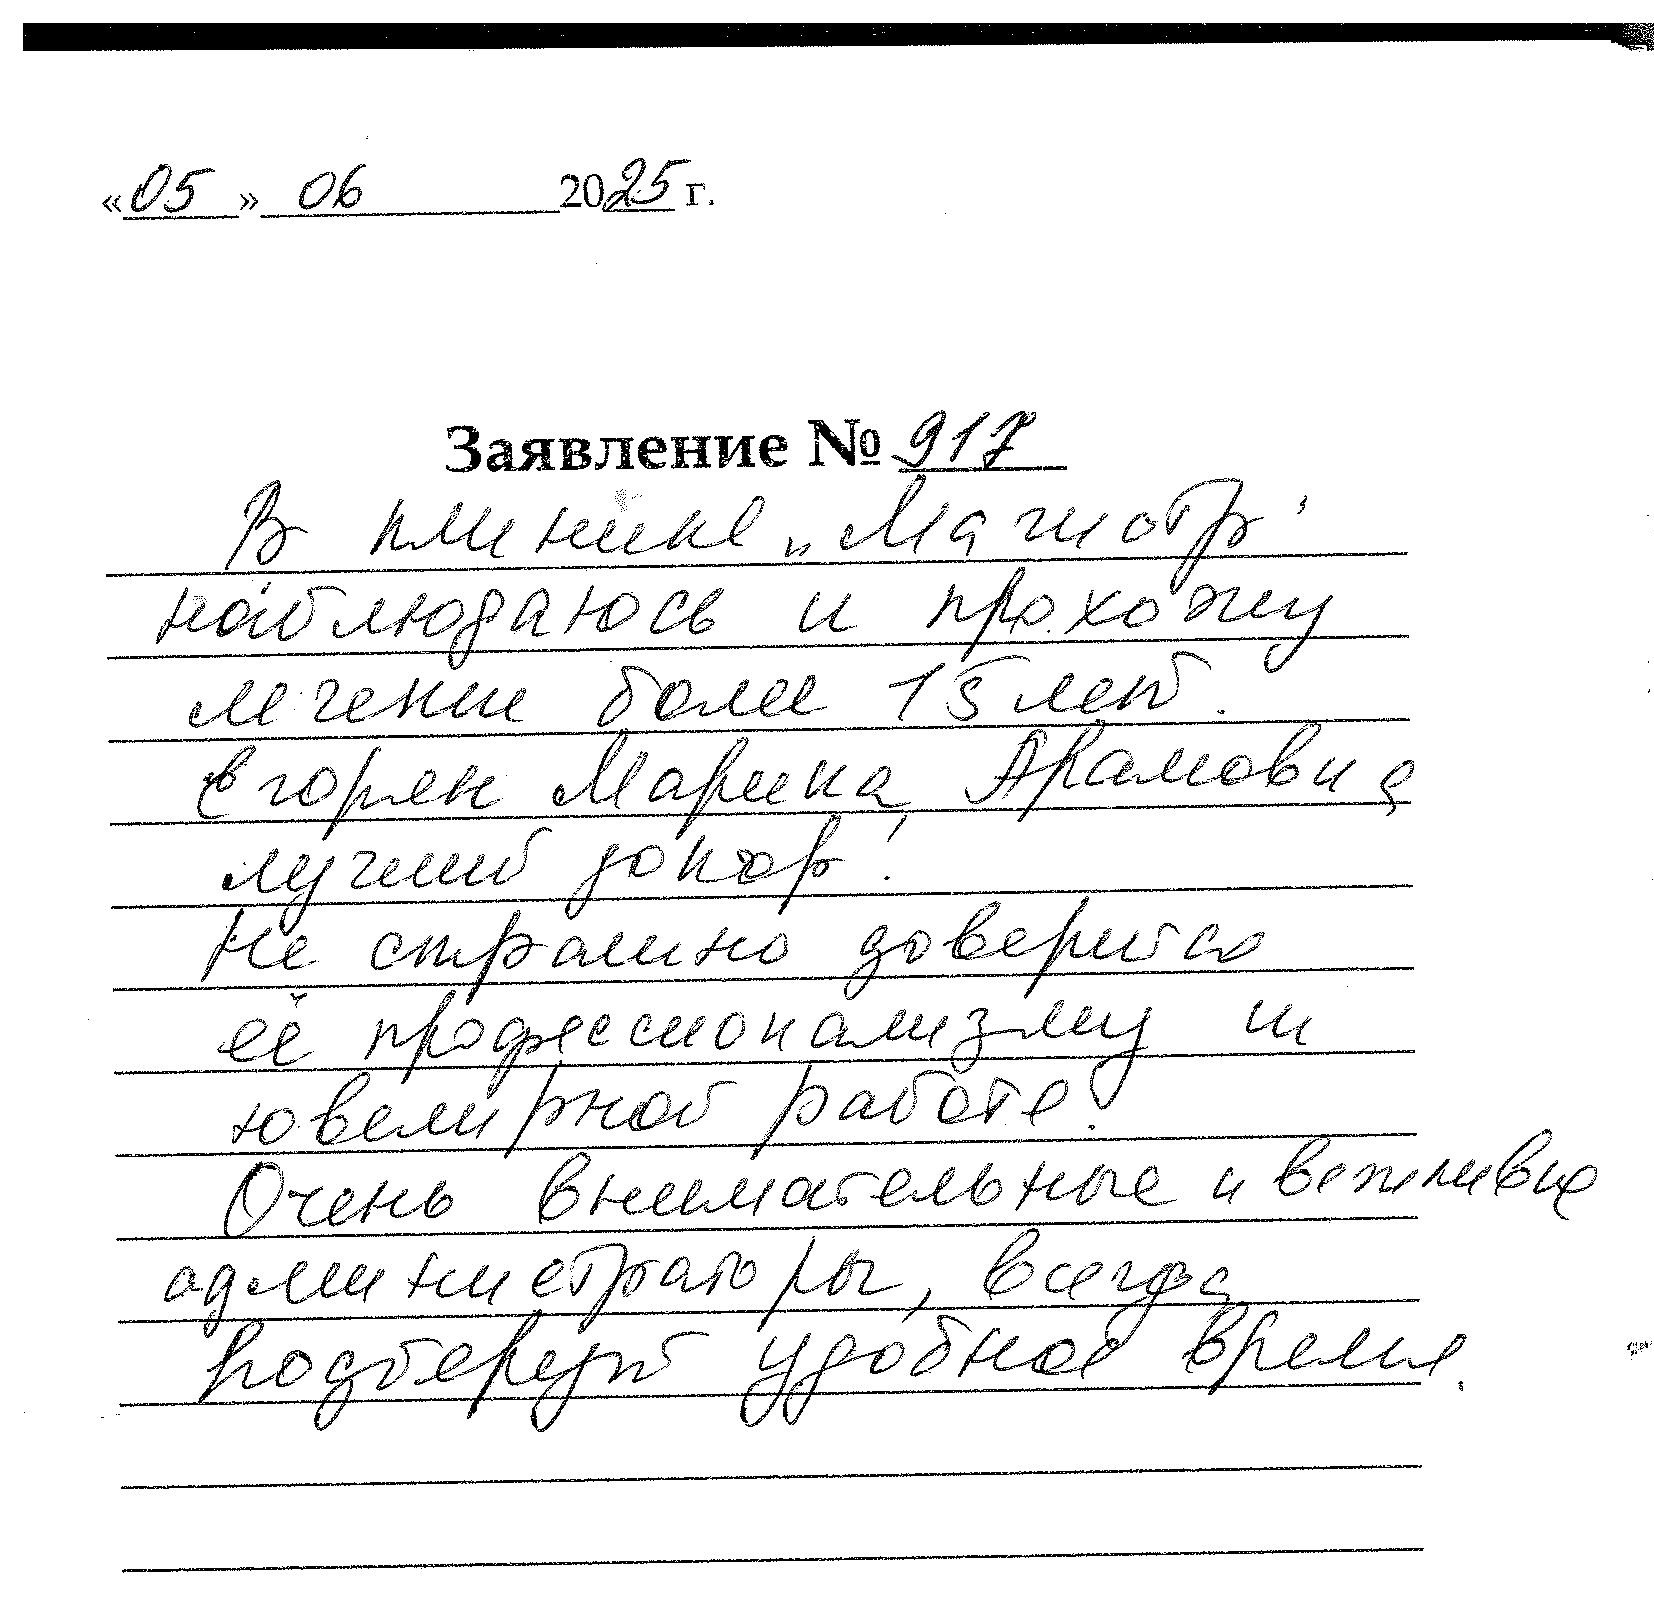 «05» 06 2025 г.
Заявление № 917
В клинике „Магистр"
наблюдаюсь и прохожу
лечение более 15 лет.
Егорян Марина Арамовна
лучший доктор!
Не страшно доверится
её профессионализму и
ювелирной работе.
Очень внимательные и вежливые
администраторы, всегда
подберут удобное время.